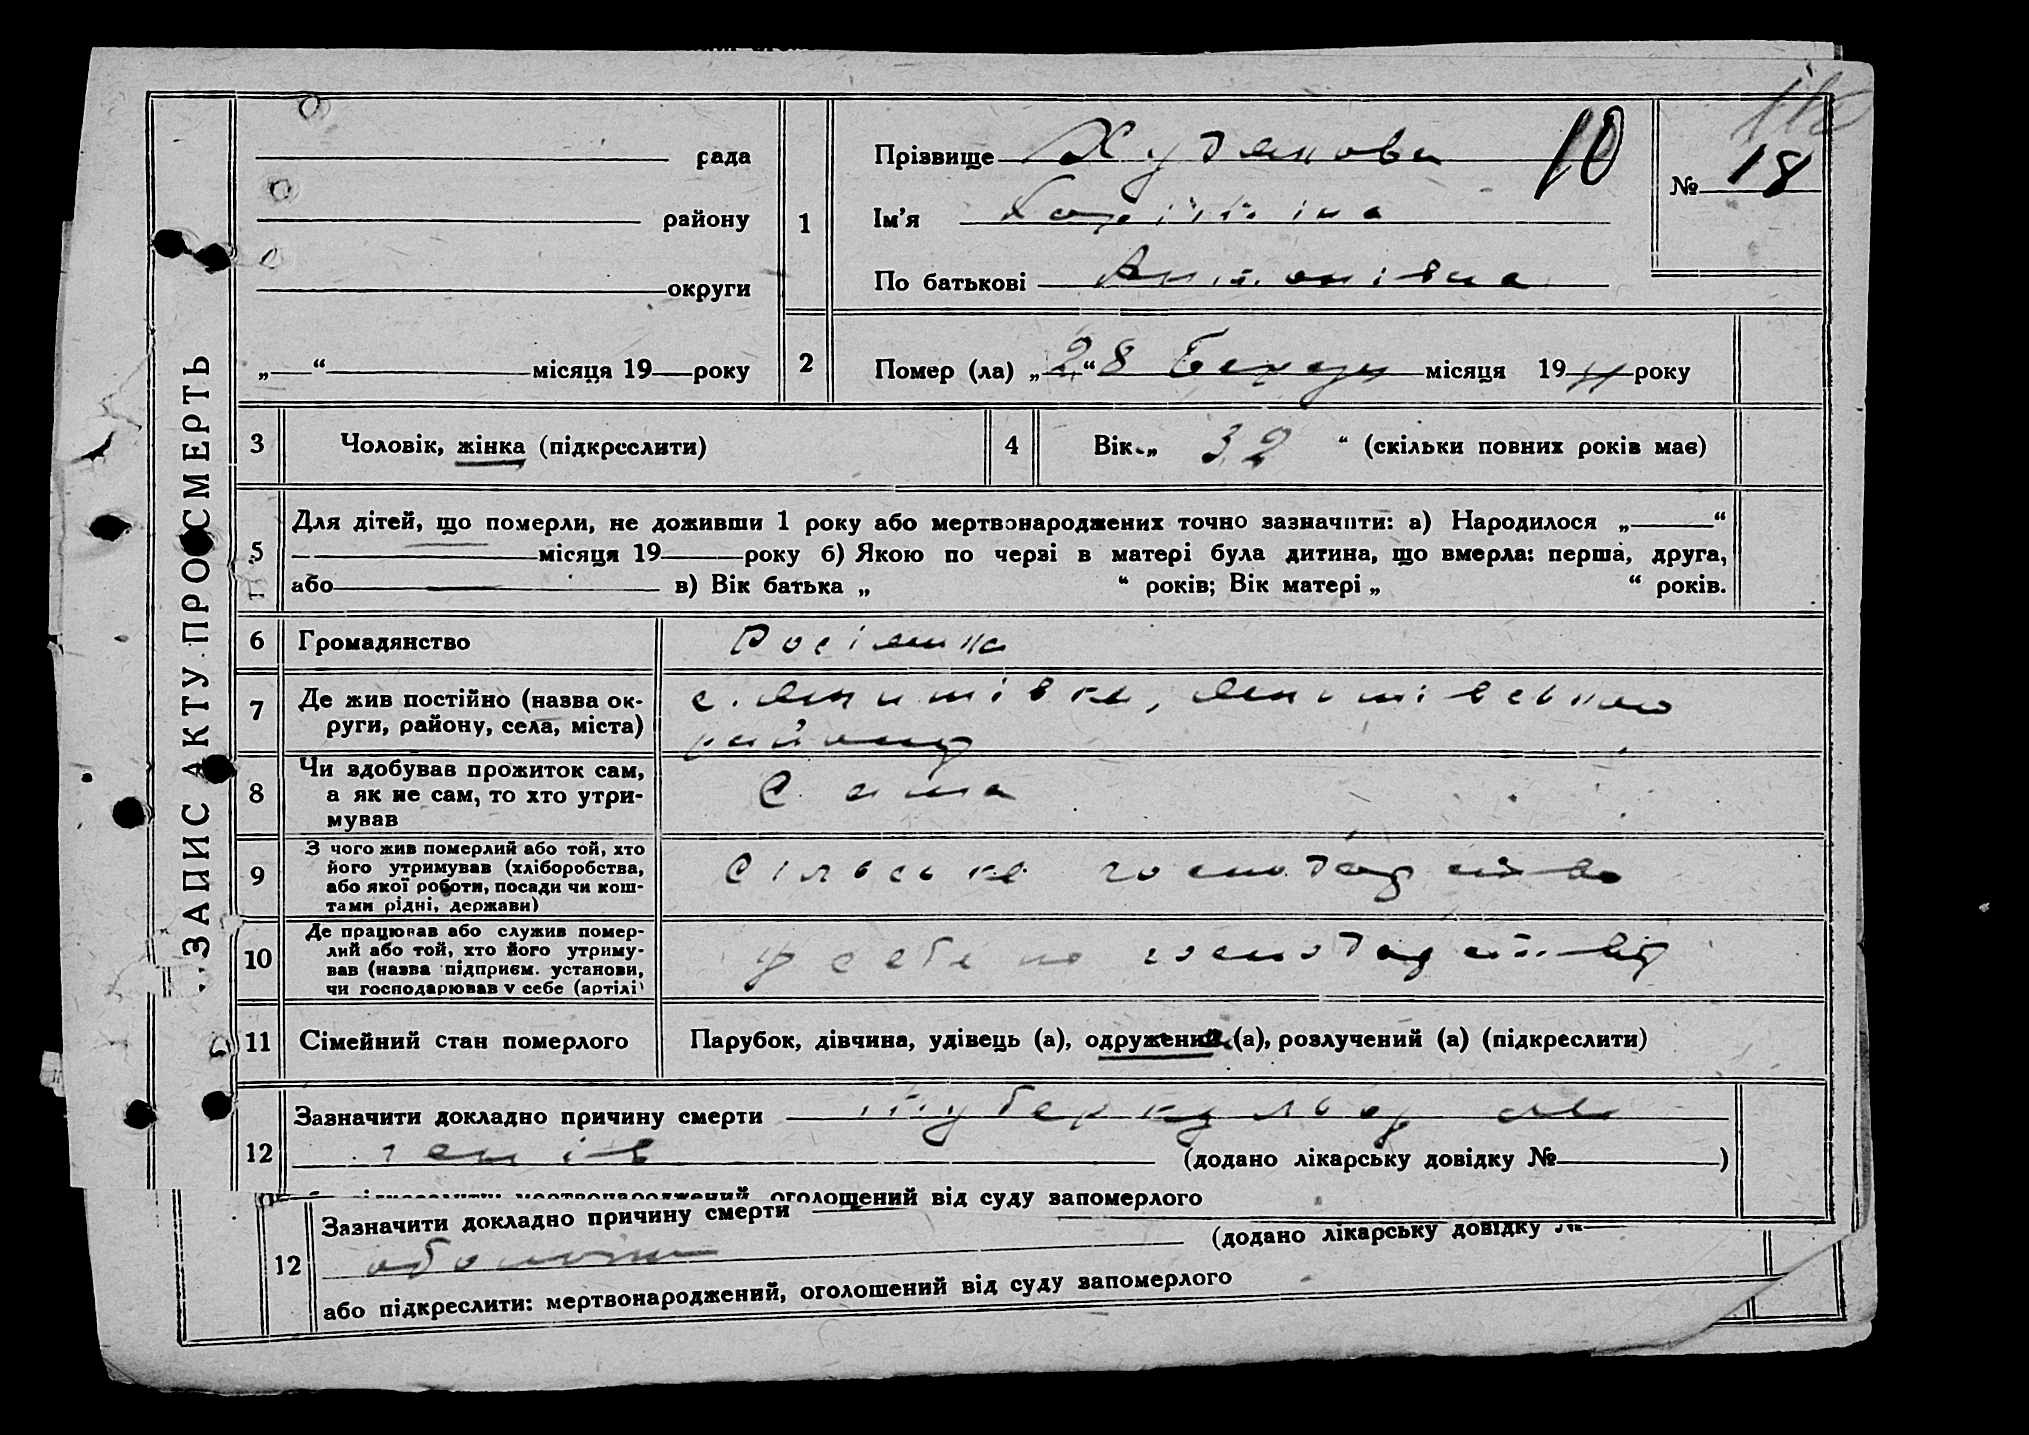 118
ЗАПИС АКТУ ПРО СМЕРТЬ
рада
району
округи
„ “ місяця 19 року
1
Прізвище Худякова 10
Ім'я
По батькові Антонівна
№ 18
2
Помер (ла) „28“ місяця 19 року
3
Чоловік, жінка (підкреслити)
4
Вік „ 32 “ (скільки повних років має)
5
Для дітей, що померли, не доживши 1 року або мертвонароджених точно зазначити: а) Народилося „ “
місяця 19 року б) Якою по черзі в матері була дитина, що вмерла: перша, друга,
або в) Вік батька „ “ років; Вік матері „ “ років.
6
Громадянство Росіянка
7
Де жив постійно (назва ок-
руги, району, села, міста)
с.
району
8
Чи здобував прожиток сам,
а як не сам, то хто утри-
мував
Сама
9
З чого жив померлий або той, хто
його утримував (хліборобства,
або якої роботи, посади чи кош-
тами рідні, держави)
Сільське господарство
10
Де працював або служив помер-
лий або той, хто його утриму-
вав (назва підприєм. установи,
чи господарював у себе (артілі)
у себе по господарству
11
Сімейний стан померлого
Парубок, дівчина, удівець (а), одружений (а), розлучений (а) (підкреслити)
12
Зазначити докладно причину смерти туберкульоз ле
генів (додано лікарську довідку № )
мертвонароджений, оголощений від суду запомерлого
12
Зазначити докладно причину смерти
(додано лікарську довідку №
або підкреслити: мертвонароджений, оголошений від суду запомерлого